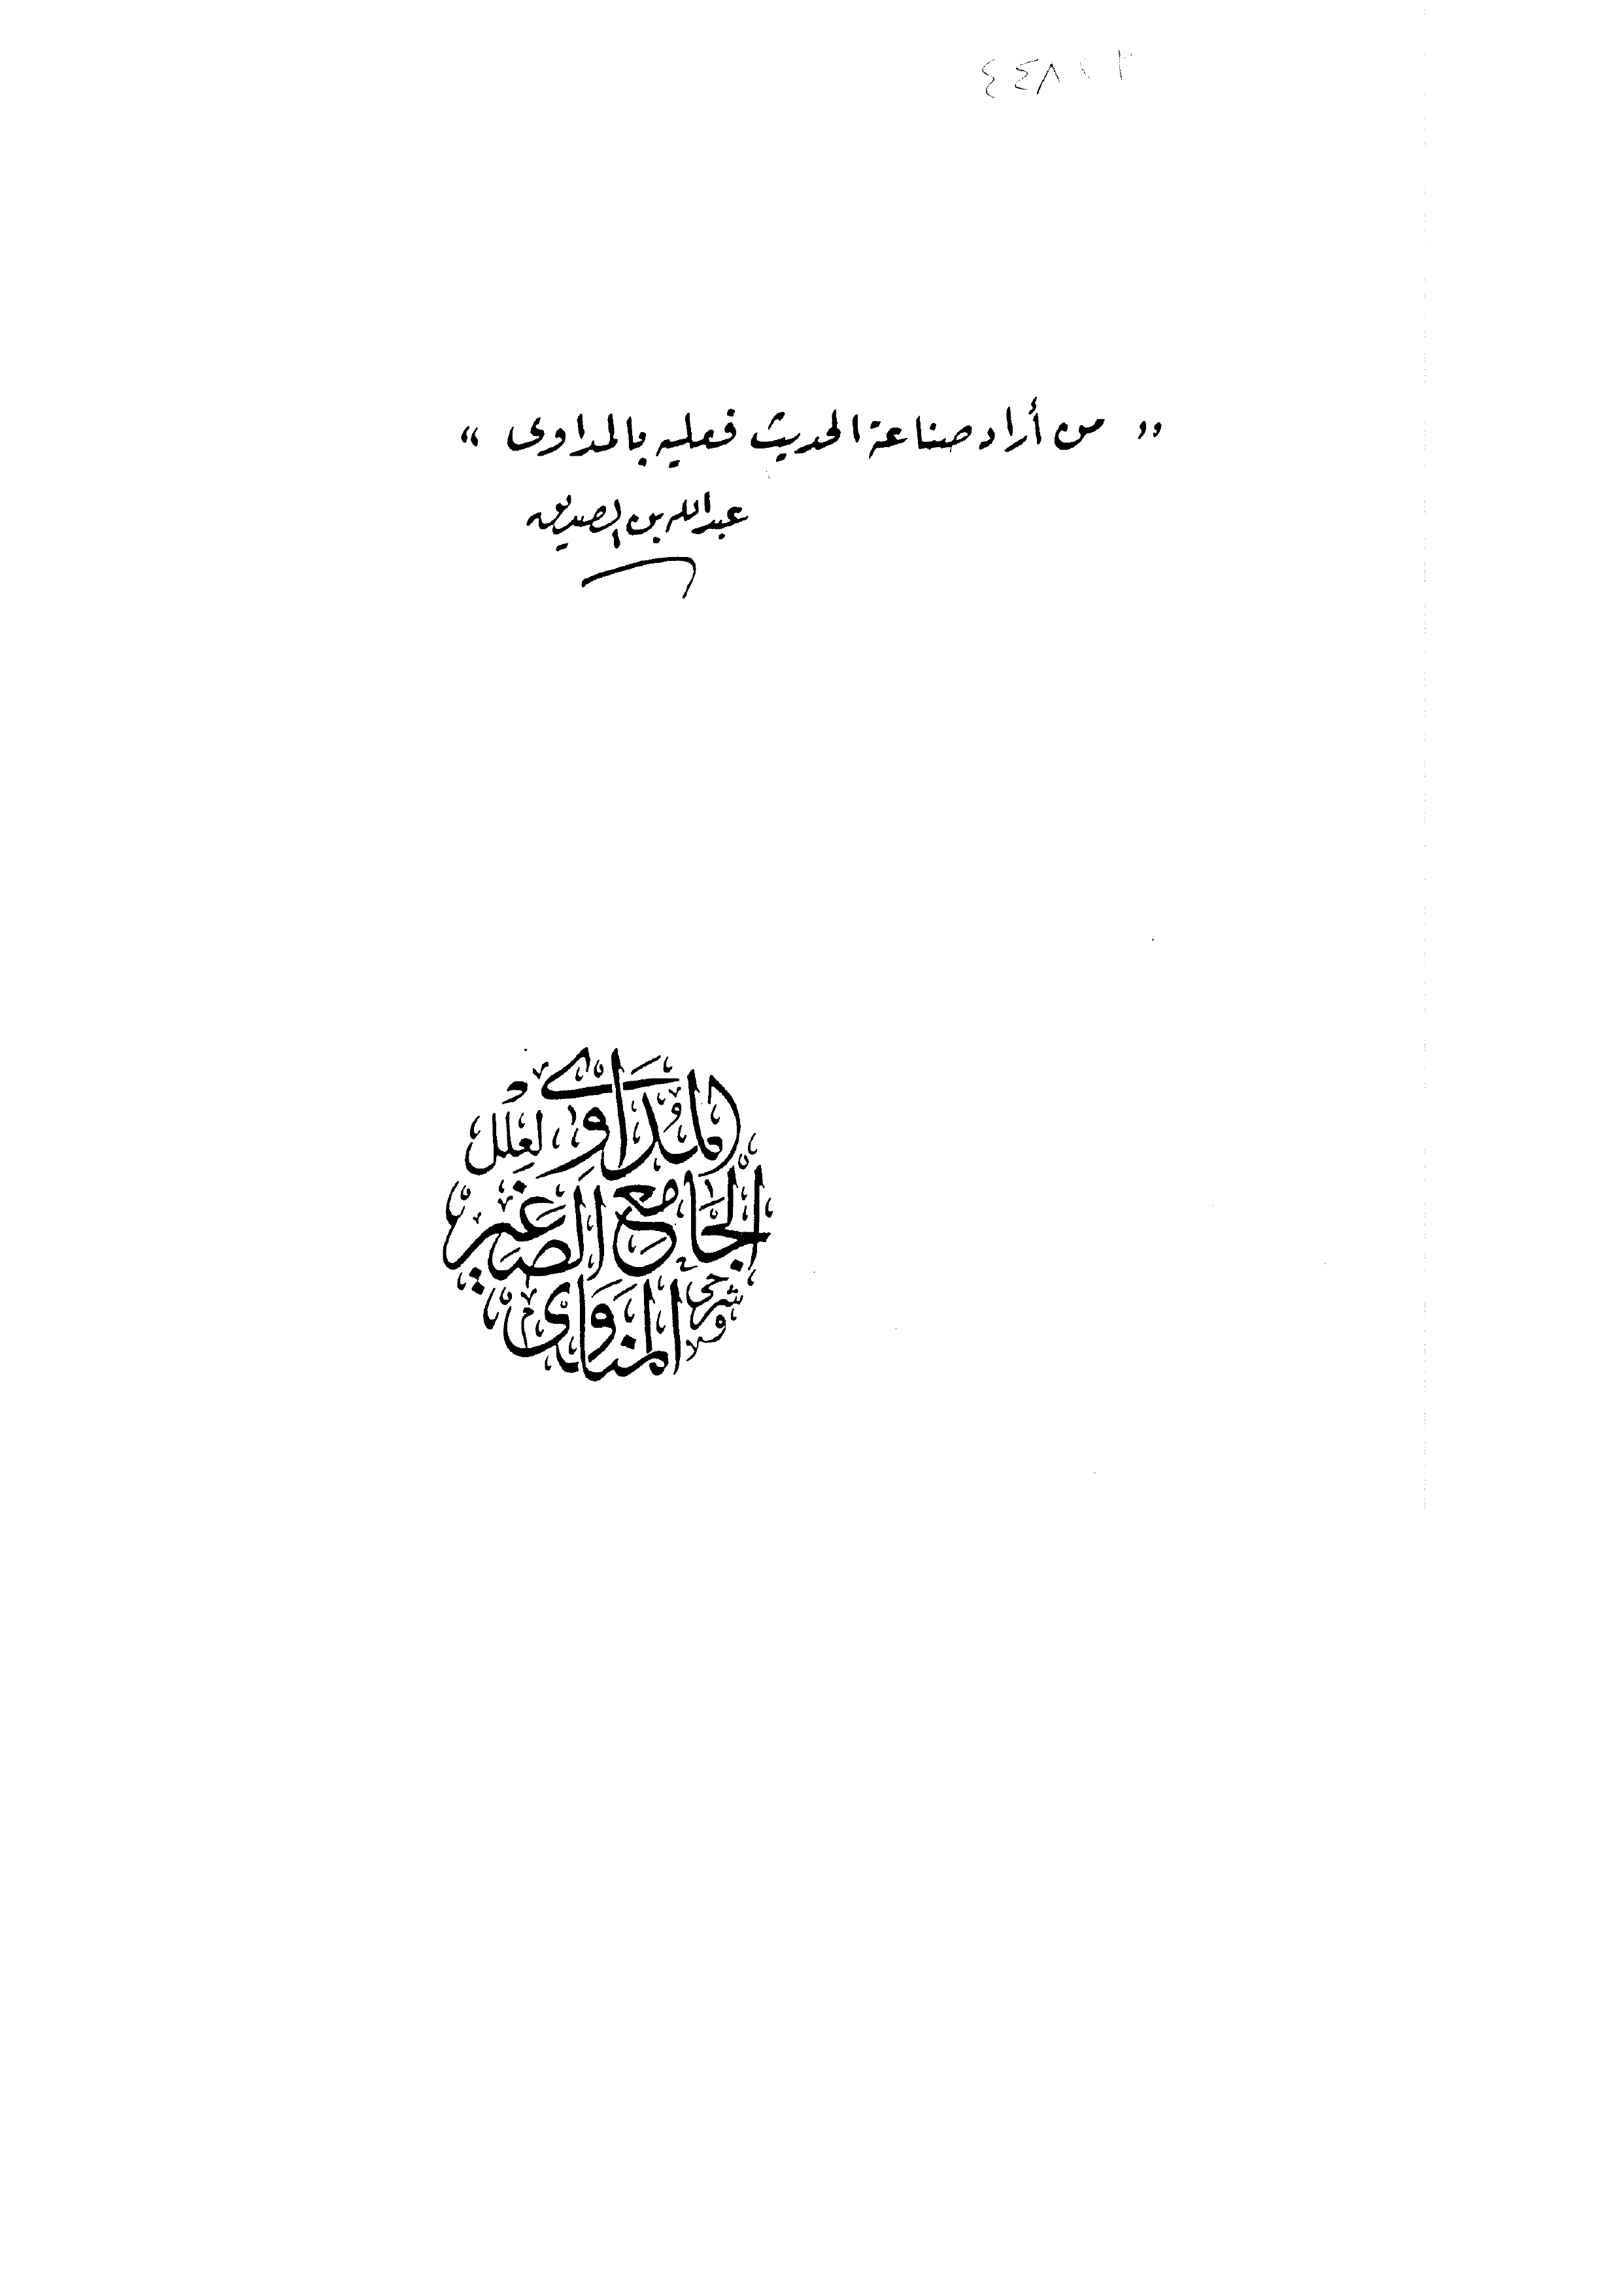 « من أراد صناعة الحديث فعليه بالمداوى »
عبد الله بن الصديق
المُدَاوي لعِلَل
الجَامِع الصَّغِير
وشرحي
المنَاوي